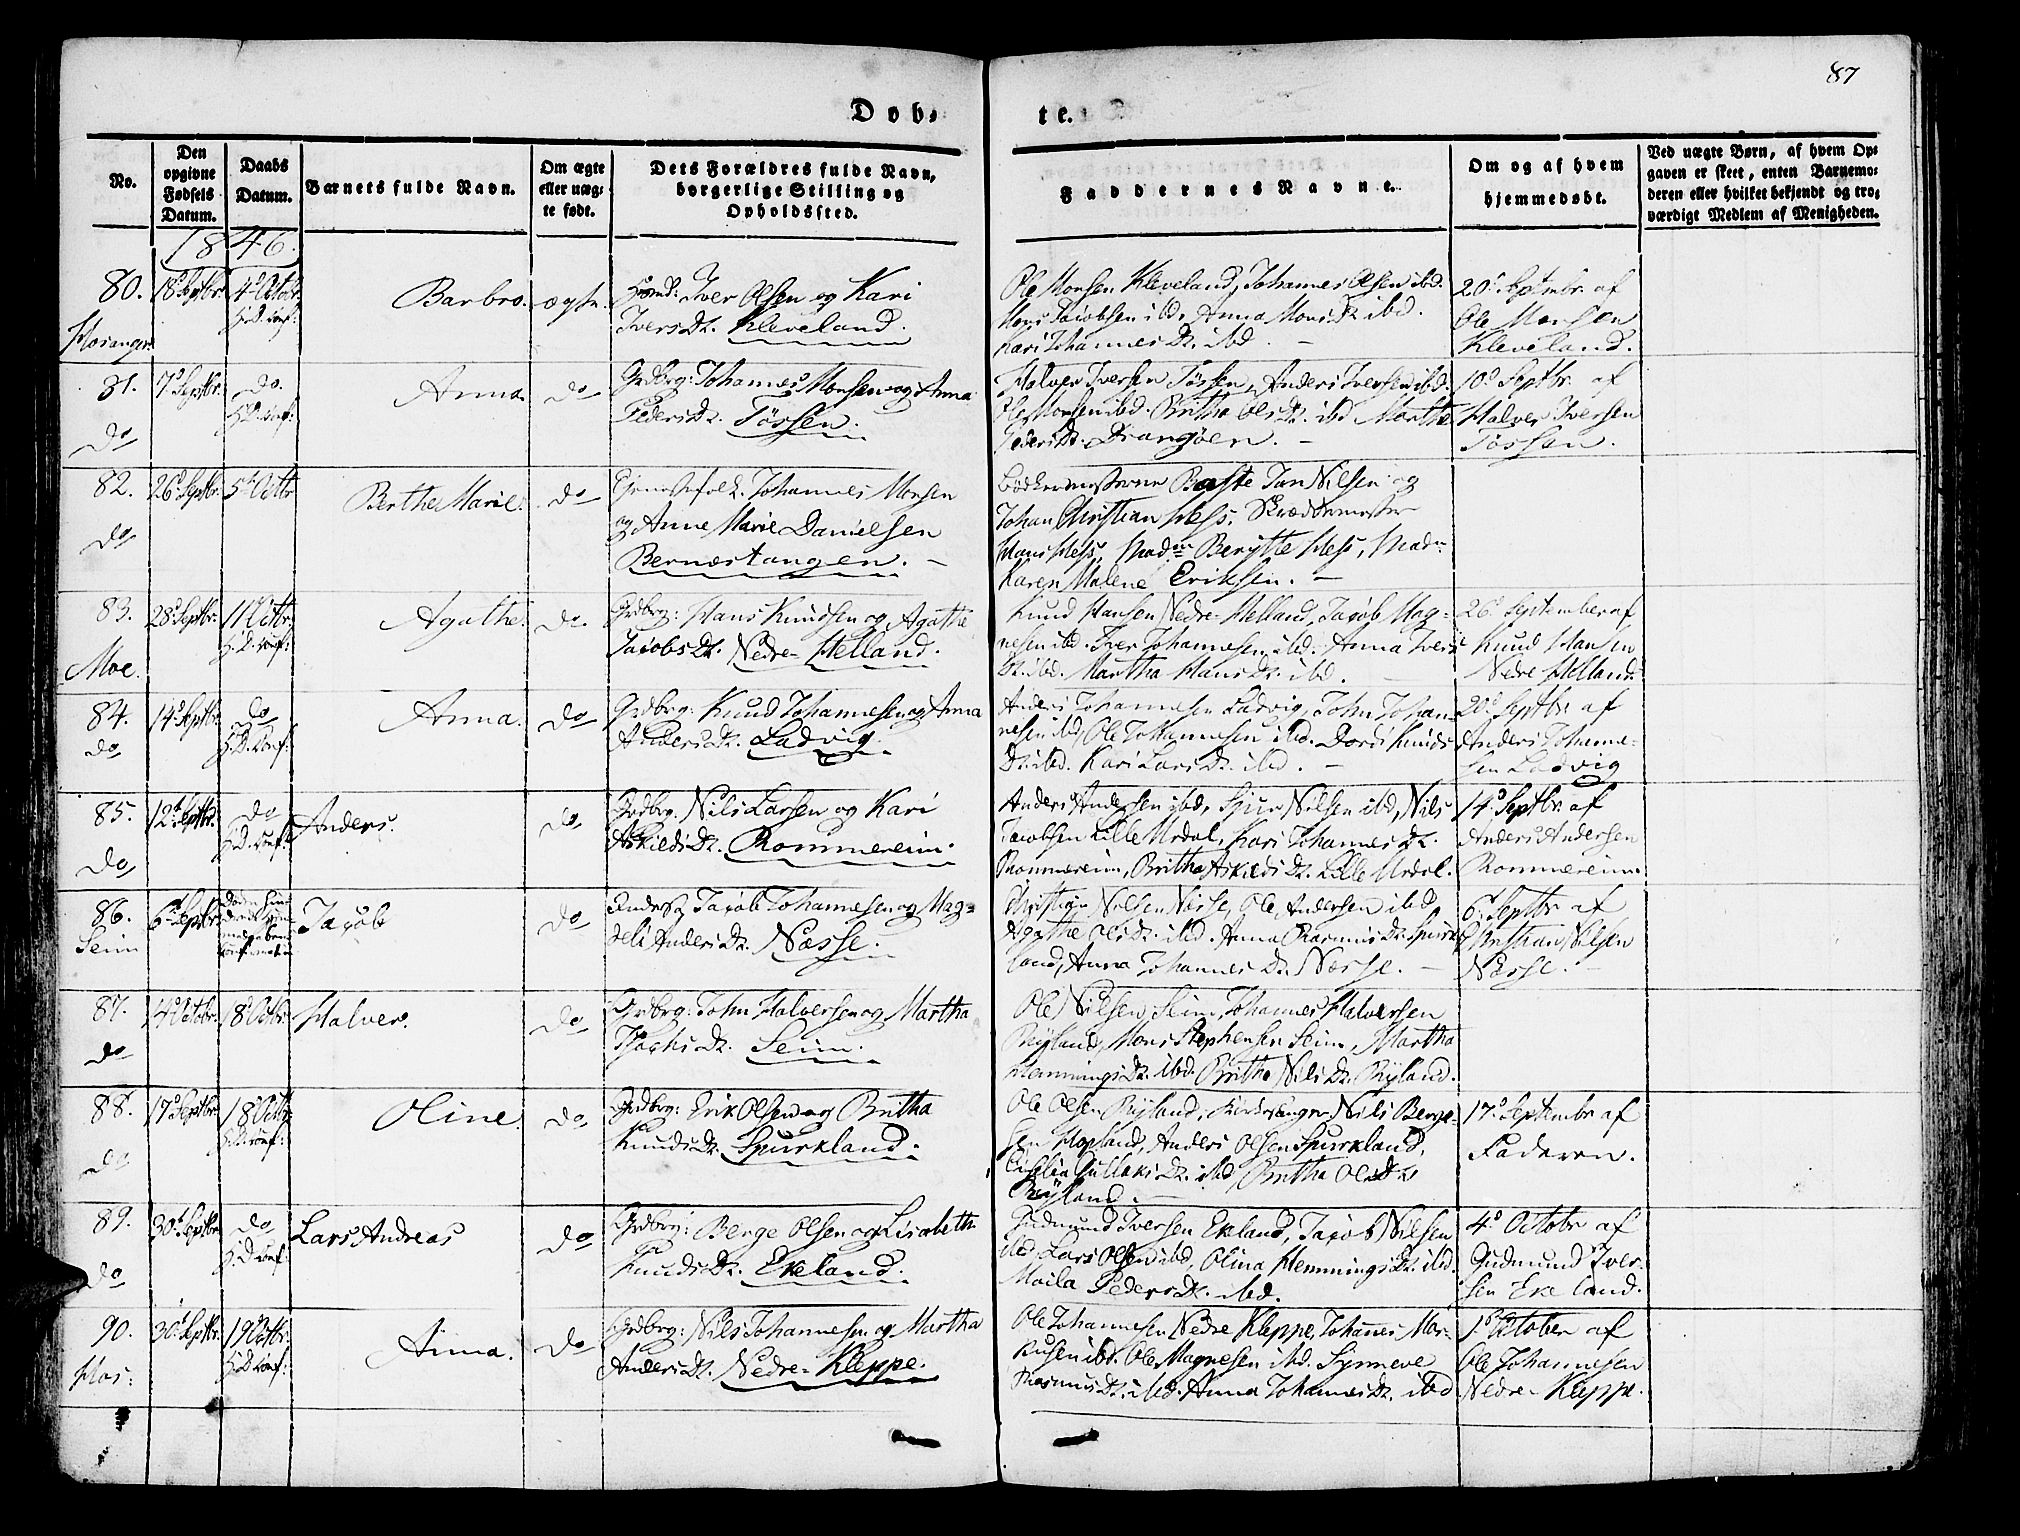 87
Døb-
te.
No.
Den opgivne Fødsels Datum.
Daabs Datum.
Barnets fulde Navn.
Om ægte eller uæg-te født.
Dets Forældres fulde Navn, borgerlige Stilling og Opholdssted.
Faddernes Navne.
Om og af hvem hjemmedøbt.
Ved uægte Børn, af hvem Op-gaven er skeet, enten Barnemo-deren eller hvilket bekjendt og tro-værdigt Medlem af Menigheden.
1846.
80.
Hosanger
18d Septbr.
4d Octobr.
H:D. conf:
Barbro.
ægte.
Iver Olsen og Kari
Ivers Dt. Kleveland.
Ole Monsen Kleveland, Johannes Olsen ibd.
Mons Jacobsen ibd, Anna Mons Dt. ibd.
Kari Johannes Dt. ibd. –
20d Septembr. af
Ole Monsen
Kleveland.
81.
do
7d Septbr.
do.
H:D. conf:
Anna.
do
Grdbrg: Johannes Monsen og Anna
Peders Dt. Tössen.
Halver Iversen Tössen, Anders Iversen ibd.
Ole Monsen ibd. Britha Ols Dt. ibd Marthe
Peders Dt. Drangöen. –
10d Septbr. af
Halver Iversen
Tössen.
82.
do
26d Septbr.
5te Octbr
Berthe Marie.
do
Johannes Monsen
og Anne Marie Danielsen
Bernestangen. –
Bödkermesterne Baste Jan Nilsen og
Johan Christian Hess. Skrædermester
Hans Hess, Madm Berytte Hess, Madm
Karen Malene Eriksen. –
83.
Moe.
28d Septbr.
11d Octbr.
H:D. conf:
Agathe.
do.
Grdbrg: Hans Knudsen og Agathe
Jacobs Dt. Nedre-Helland.
Knud Hansen Nedre-Helland, Jacob Mag-
nesen ibd. Iver Johannesen ibd. Anna Ivers
Dt. ibd. Martha Hans Dt. ibd.
26d September af
Knud Hansen
Nedre Helland.
84.
do
14d Septbr.
do
H:D. conf:
Anna.
do
Grdbrg: Knud Johannesen og Anna
Anders Dt. Ladvig.
Anders Johannesen Ladvig, John Johan-
nesen ibd, Ole Johannesen ibd. Dordi Knuds
Dt. ibd. Kari Lars Dt. ibd. –
20d Septbr. af
Anders Johanne-
sen Ladvig
85.
do
12te Septbr.
do
H:D. conf:
Anders.
do
Grdbrg. Nils Larsen og Kari
Askilds Dt. Rommereim.
Anders Andersen ibd, Sjur Nilsen ibd, Nils
Jacobsen Lille Urdal, Kari Johannes Dt.
Rommereim, Britha Askilds Dt. Lille Urdal.
14d Septbr. af
Anders Andersen
Rommereim
86.
Seim
6te Septbr.
Jacob
do
Jacob Johannesen og Mag-
deli Anders Dt. Næsse.
Christian Nilsen Næsse, Ole Andersen ibd
Agathe Ols Dt. ibd. Anna Rasmus Dt. Spurk-
land, Anna Johannes Dt. Næsse. –
6te Septbr af
Christian Nilsen
Næsse. –
87.
do
14d Octobr.
18d Octbr.
Halver.
do
Grdbrg: John Halversen og Martha
Dt. Seim.
Ole Nilsen Seim, Johannes Halversen
Ryland, Mons Stephensen Seim, Martha
Hemmings Dt. ibd. Britha Nils Dt. Ryland.
88.
do
17d Septbr.
18d Octbr
H:D. conf:
Oline.
do
Grdbrg: Erik Olsen og Britha
Knuds Dt. Spurkland.
Ole Olsen Ryland, Kirkesanger Nils Berge-
sen Hopland, Anders Olsen Spurkland,
Gullaks Dt. ibd, Britha Ols Dt
Ryland. –
17d Septembr af
Faderen.
89.
do
30d Septbr.
do
H:D conf:
Lars Andreas
do
Grdbrg: Berge Olsen og Lisabeth
Knuds Dt. Ekeland.
Gudmund Iversen Ekeland, Jacob Nilsen
ibd. Lars Olsen ibd, Olina Hemmings Dt. ibd.
Maila Peders Dt. ibd.
4d Octobr af
Gudmund Iver-
sen Ekeland.
90.
Hos:
30d Septbr.
19d Octbr.
H:D conf:
Anna.
do
Grdbrg: Nils Johannesen og Martha
Anders Dt. Nedre-Kleppe.
Ole Johannesen Nedre Kleppe, Johannes Mar-
kusen ibd. Ole Magnesen ibd. Synneve
Rasmus Dt. ibd. Anna Johannes Dt. ibd
1d October af
Ole Johannesen
Nedre-Kleppe.